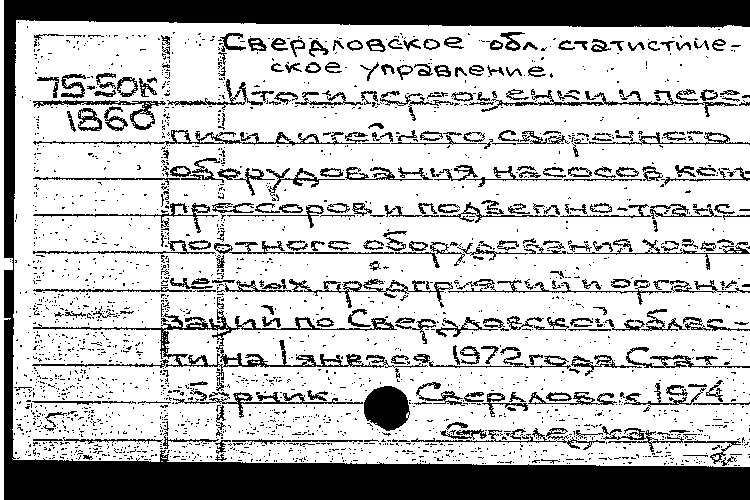 Свердловское обл. статистиче-
ское управление.
75-50к
1860
Итоги переоценки и пере-
писи литейного, сварочного
оборудования, насосов, ком-
прессоров и подъемно-транс-
портного оборудования хозрас-
четных предприятий и органи-
заций по Свердловской облас-
ти на 1 января 1972 года Стат.
сборник. Свердловск, 1974.
5